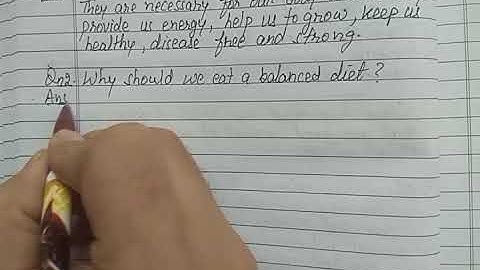 They are necessary for our
provide us energy, help us to grow, keep us
healthy, disease free and strong.
Qn2. Why should we eat a balanced diet?
Ans